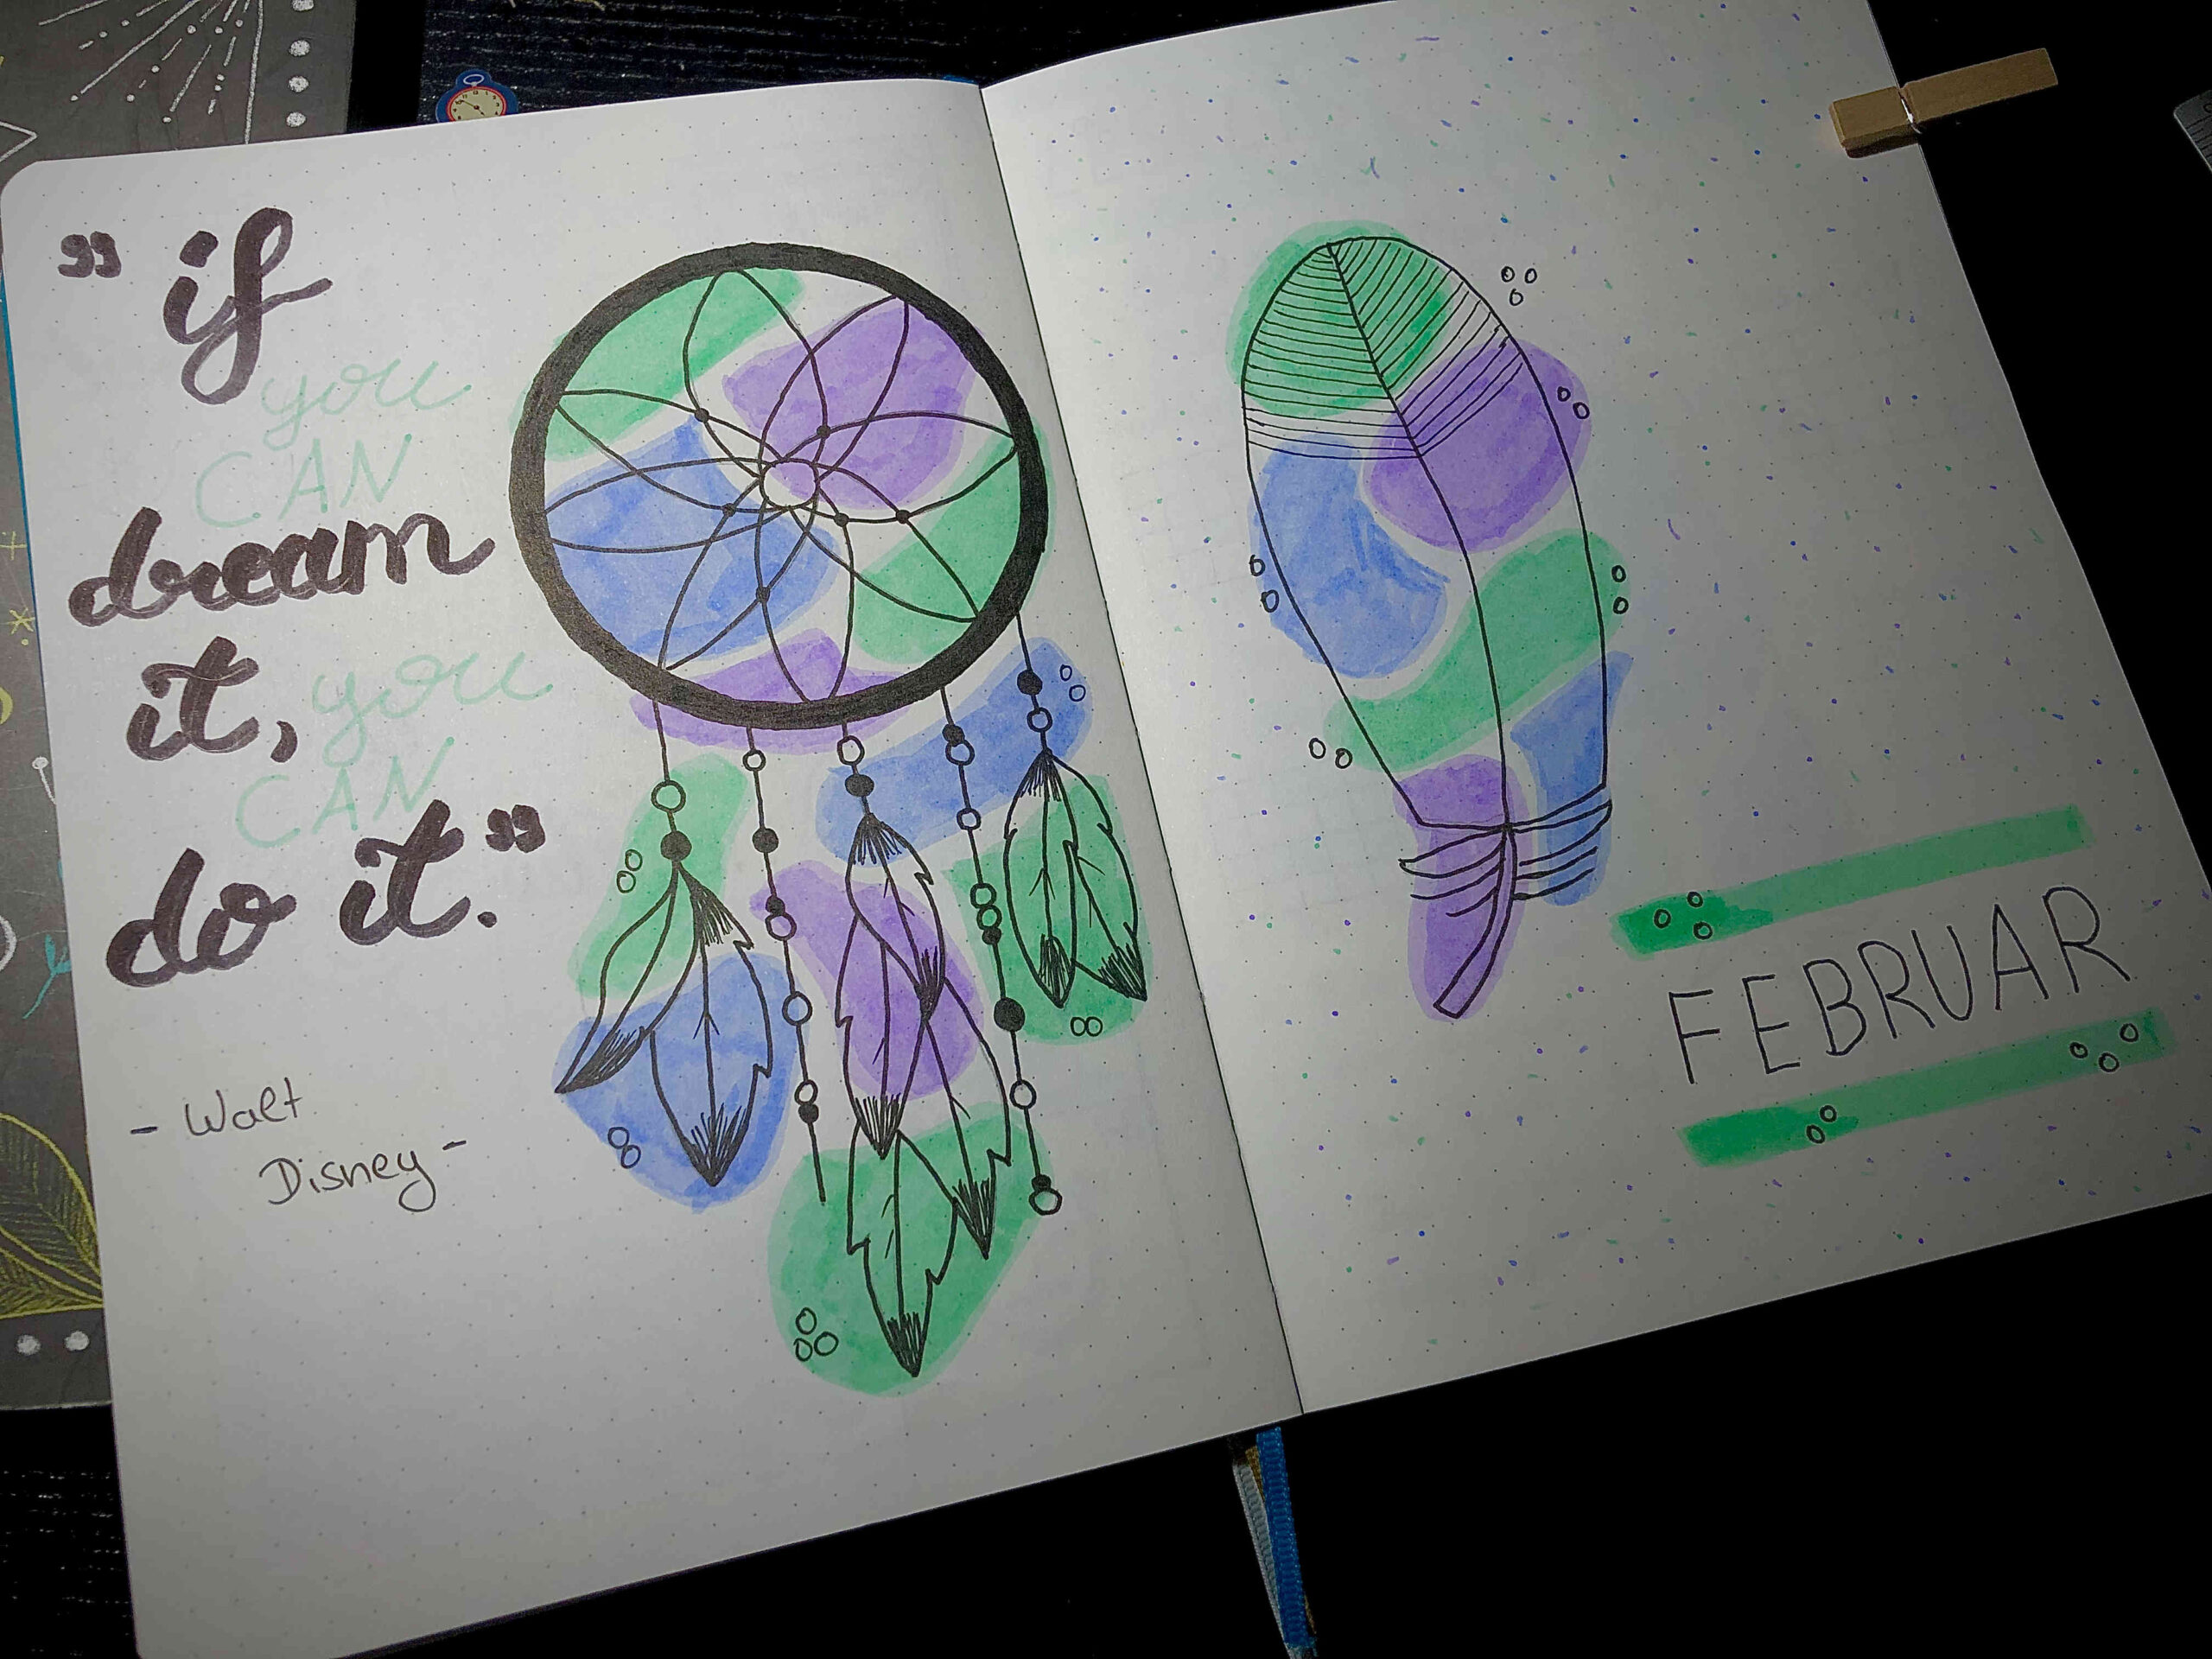 " if
you
CAN
dream
it, you
CAN
do it."
- Walt
Disney -
FEBRUAR